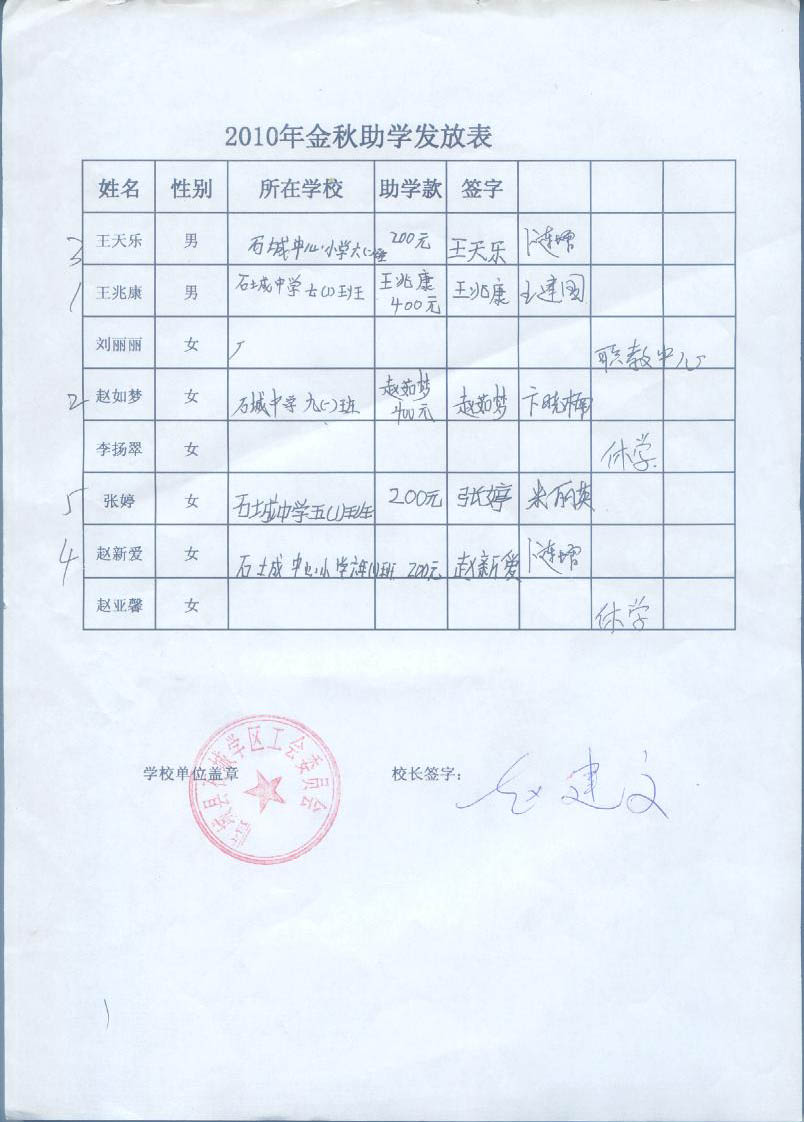 2010年金秋助学发放表
姓名 性别 所在学校 助学款 签字
3 王天乐 男 石城中心小学六(一)班 200元 王天乐
1 王兆康 男 石城中学七(1)班王 王兆康 400元 王兆康 王建国
刘丽丽 女 职教中心
2 赵如梦 女 石城中学九(一)班 赵茹梦 400元 赵茹梦 卞晓梅
李扬翠 女 休学
5 张婷 女 石城中学五(1)班 200元 张婷 米丽英
4 赵新爱 女 石城中心小学 班 200元 赵新爱
赵亚馨 女 休学
学校单位盖章 学区工会委员会
校长签字: 赵建文